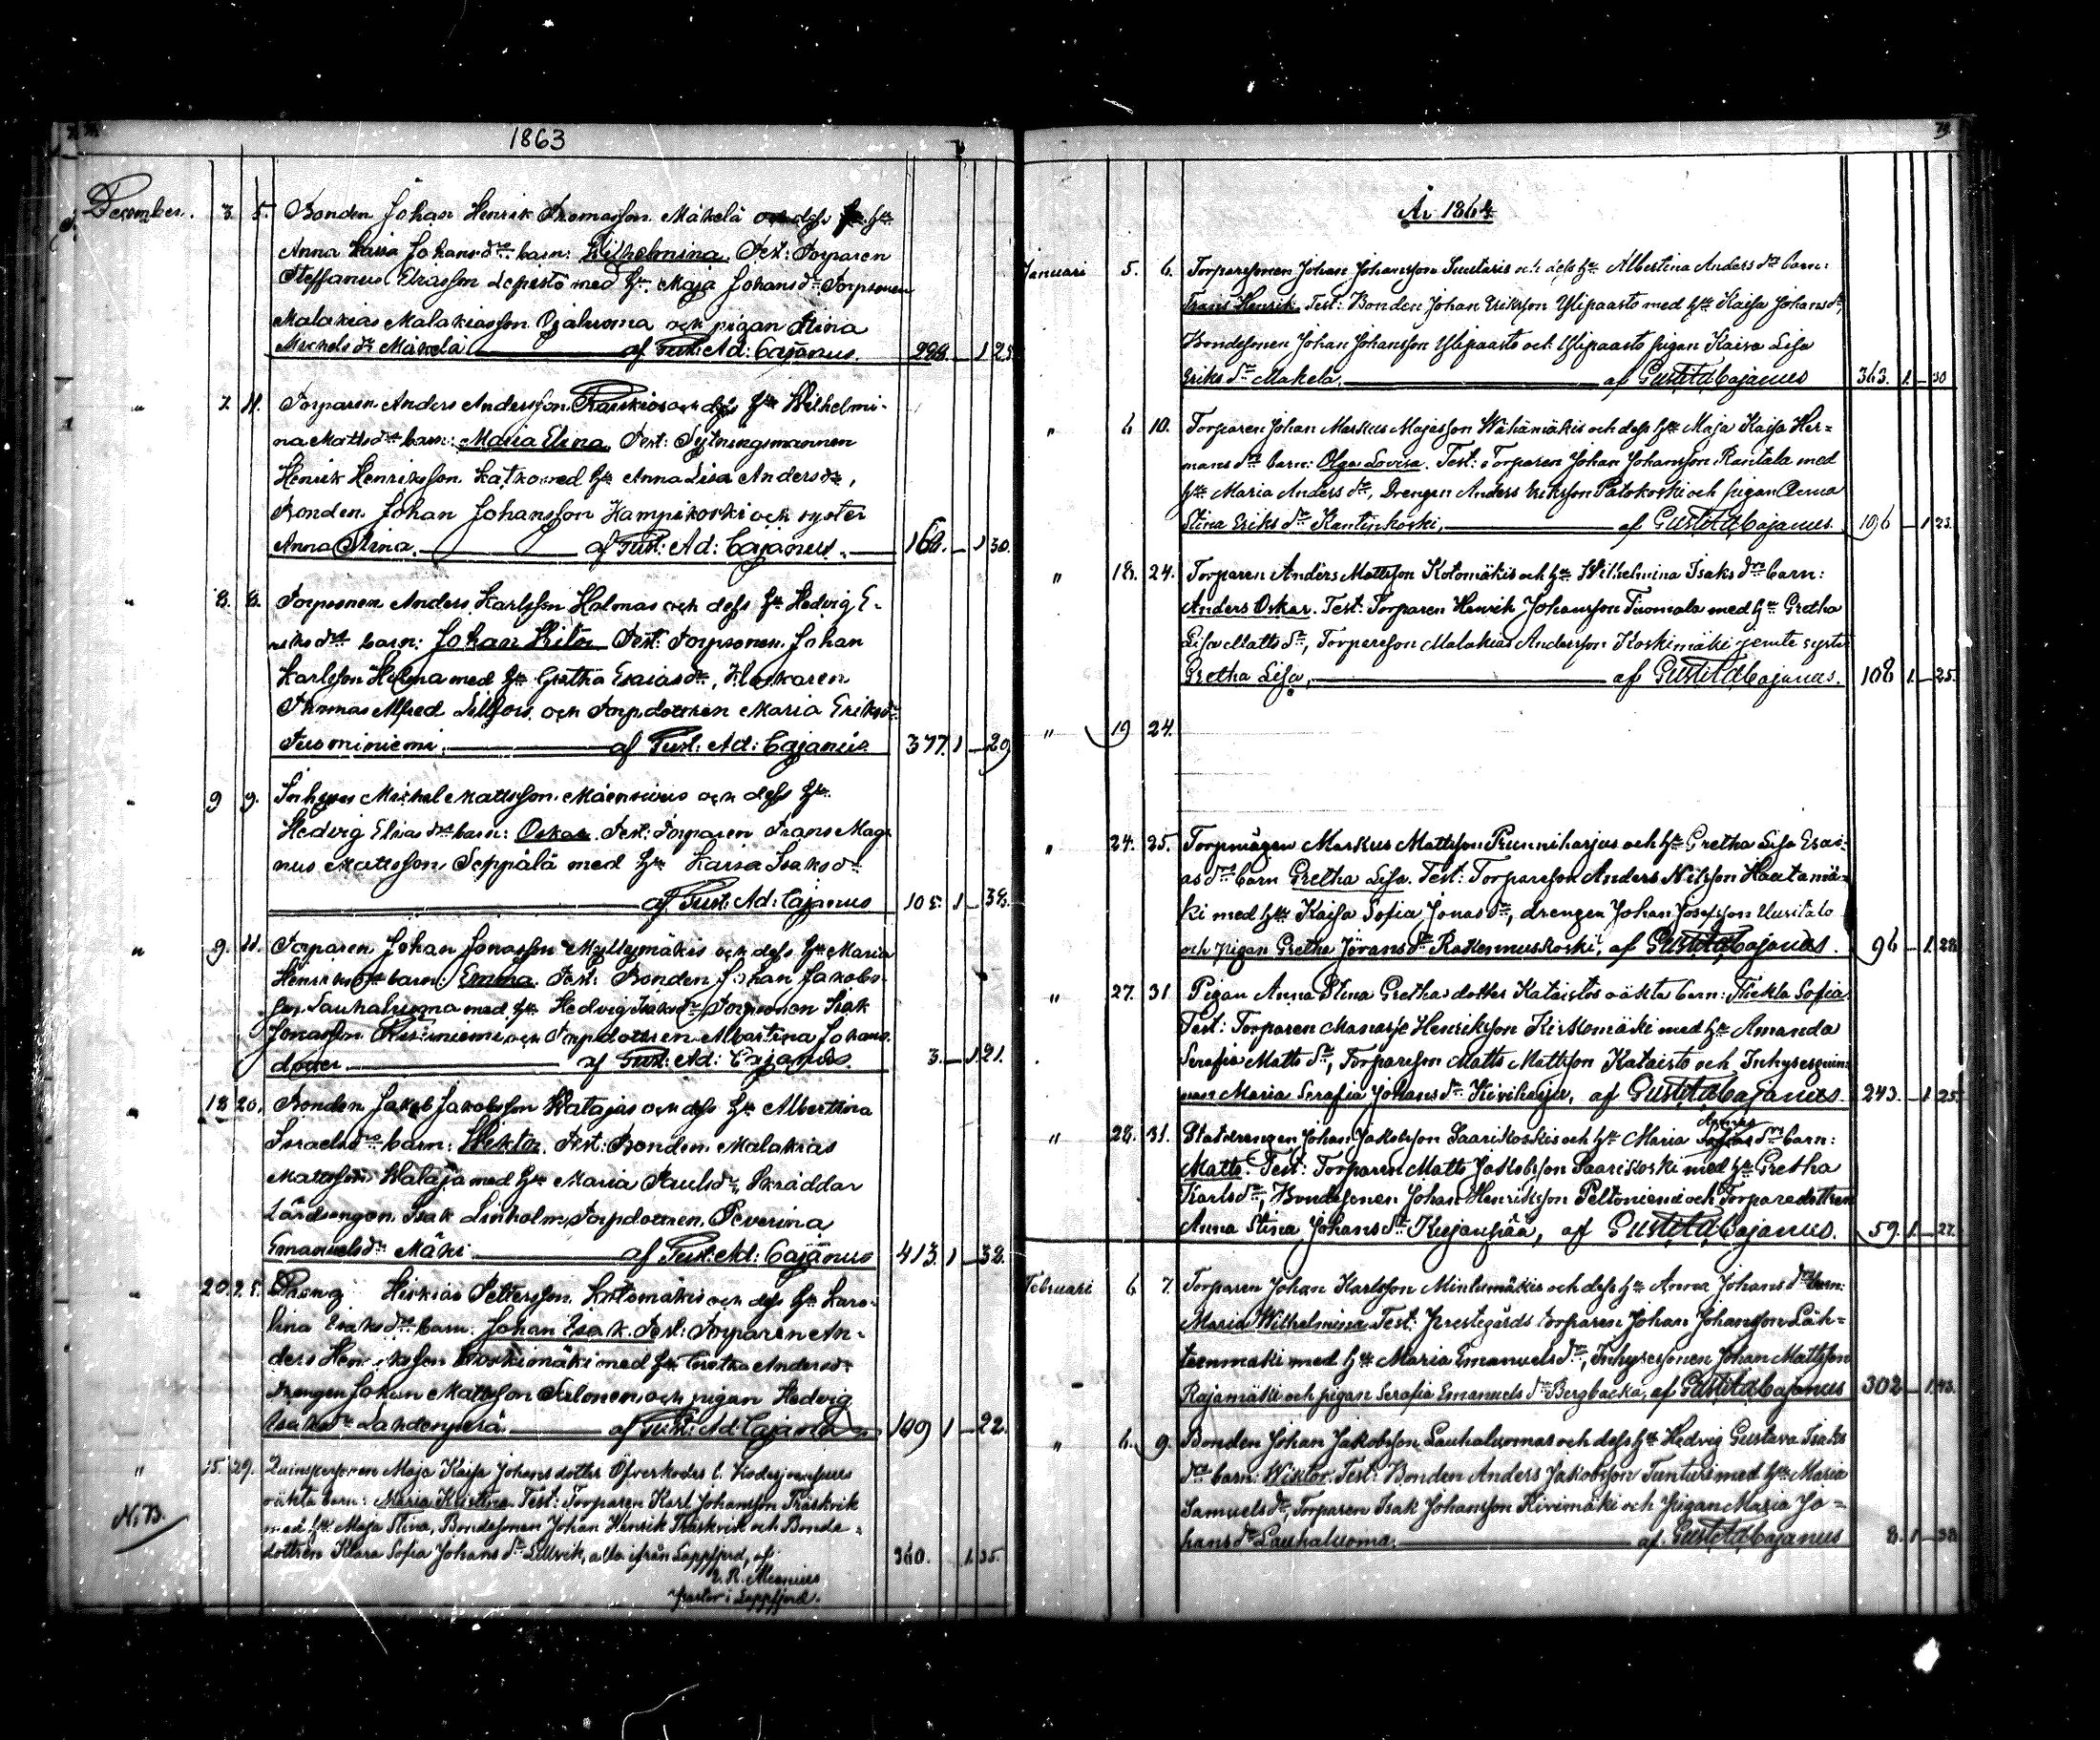 1863
December. 3. 5. Bonden Johan Henrik Thomasson Mäkelä och dess Hu
Anna Kaisa Johansdr barn: Wilhelmina. Test: Torparen
Steffanus Esrasson Lepistö med Hu Maja Johansdr Torpsonen
Malakias Malakiasson Ojaluoma och pigan Stina
Mickelsdr Mäkelä af Gust: Ad: Cajanus. 288. 1 25
" 7. 11. Torparen Anders Andersson och dess Hu Wilhelmi-
na Mattsdr barn: Maria Elina. Test: Sytningsmannen
Henrik Henriksson Katko med Hu Anna Lisa Andersdr,
Bonden Johan Johansson Hampikoski och syster
Anna Stina. af Gust: Ad: Cajanus. 162. 1 30.
" 8. 8. Torpsonen Anders Karlsson Holmas och dess Hu Hedvig E-
riksdr barn: Johan Test: Torpsonen Johan
Karlsson Holma med Hu Gretha Esaiasdr, Klockaren
Thomas Alfred Lillfors och Torpdottren Maria Eriksdr
Tuominiemi. af Gust: Ad: Cajanus. 377. 1 29
" 9 9. Inhyses Michel Mattsson och dess Hu
Hedvig Eliasdr barn: Oskar. Test: Torparen Frans Mag-
nus Mattsson Seppälä med Hu Kaisa Isaksdr
af Gust: Ad: Cajanus 105. 1 38.
" 9. 11. Torparen Johan Jonasson Myllymäkis och dess Hu Maria
Henriksdr barn: Emma. Test: Bonden Johan Jakobs-
son Lauhaluoma med Hu Hedvig Isaksdr Torpsonen Isak
Jonasson och Torpdottren Albertina Johans
dotter af Gust: Ad: Cajanus. 3. 1 21.
" 18 20. Bonden Jakob Jakobsson Watajas och dess Hu Albertina
Israelsdr barn: Wiktor. Test: Bonden Malakias
Mattsson Wataja med Hu Maria Paulsdr, Skräddar
Lärdrengen Isak Linholm, Torpdottren Severina
Emanuelsdr Mäki af Gust: Ad: Cajanus 413. 1 38.
" 20. 25. Dräng Hiskias Pettersson Kotomäkis och dess Hu Karo-
lina Isaksdr barn: Johan Isak. Test: Torparen An-
ders Henriksson Koskimäki med Hu Gretha Andersdr
Drengen Johan Mattsson Salonen och pigan Hedvig
Isaksdr Lahdenperä. af Gust: Ad: Cajanus 109 1 22.
" 15. 29. Qvinspersonen Maja Kaisa Johansdotter Öfverkoders l.
N.B. oäkta barn: Maria Kristina. Test: Torparen Karl Johansson Träskvik
med Hu Maja Stina, Bondesonen Johan Henrik Träskvik och Bonde-
dottren Klara Sofia Johansdr Lillvik, alla ifrån Lappfjerd, af
360. 1 35.
pastor i Lappfjerd.
79.
År 1864
Januari 5. 6. Torparesonen Johan Johansson Suutaris och dess Hu Albertina Andersdr barn:
Frans Henrik. Test: Bonden Johan Eriksson Ylipaasto med Hu Kaisa Johansdr,
Bondesonen Johan Johansson Ylipaasto och Ylipaasto pigan Kaisa Lisa
Eriksdr Mäkelä. af Gust. Ad. Cajanus 363. 1. 30
" 6 10. Torparen Johan Markus Majasson Wähämäkis och dess Hu Maja Kaisa Her-
mansdr barn: Olga Lovisa. Test: Torparen Johan Johansson Rantala med
Hu Maria Andersdr, Drengen Anders Eriksson Palokoski och pigan Anna
Stina Eriksdr af Gust. Ad. Cajanus. 106 1 23.
" 18. 24. Torparen Anders Mattsson Kotomäkis och Hu Wilhelmina Isaksdr barn:
Anders Oskar. Test: Torparen Henrik Johansson Tuomala med Hu Gretha
Lisa Mattsdr, Torpareson Malakias Andersson Koskimäki jemte syster
Gretha Lisa, af Gust. Ad. Cajanus. 108 1. 25.
" 19 24.
" 24. 25. Torpmågen Markus Mattsson Runniharjus och Hu Gretha Lisa Esai-
asdr barn Gretha Lisa. Test: Torpareson Anders Nilsson Hautamä-
ki med Hu Kaisa Sofia Jonasdr, drengen Johan Josefsson Uusitalo
och pigan Gretha Göransdr Rakennuskoski, af Gust. Ad. Cajanus. 96 1. 28
" 27. 31 Pigan Anna Stina Grethasdotter Kataistos oäkta barn: Thekla Sofia.
Test: Torparen Manasse Henriksson Kirkkomäki med Hu Amanda
Serafia Mattsdr, Torpareson Matts Mattsson Kataisto och Inhysesqvin-
nan Maria Serafia Johansdr Kiviharju, af Gust. Ad. Cajanus. 243. 1 25
" 28. 31. Statdrengen Johan Jakobsson Saarikoskis och Hu Maria dr barn:
Matts. Test: Torparen Matts Jakobsson Saarikoski med Hu Gretha
Karlsdr, Bondesonen Johan Henriksson Peltoniemi och Torparedottren
Anna Stina Johansdr Kujanpää, af Gust. Ad. Cajanus. 59. 1. 27.
Februari 6 7. Torparen Johan Karlsson Mintumäkis och dess Hu Anna Johansdr barn:
Maria Wilhelmina Test: Prestegårds torparen Johan Johansson Läh-
teenmäki med Hu Maria Emanuelsdr, Inhysesonen Johan Mattsson
Rajamäki och pigan Serafia Emanuelsdr Bergbacka, af Gust. Ad. Cajanus 302 1 43.
" 6. 9. Bonden Johan Jakobsson Lauhaluomas och dess Hu Hedvig Gustava Isaks
dr barn: Wiktor. Test: Bonden Anders Jakobsson Tunturi med Hu Maria
Samuelsdr, Torparen Isak Johansson Kivimäki och pigan Maria Jo-
hansdr Lauhaluoma. af Gust. Ad. Cajanus 8. 1 38